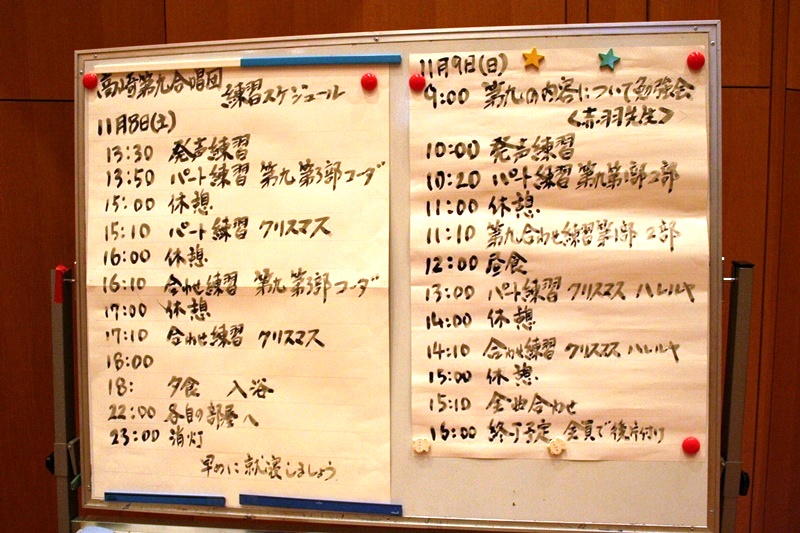 高崎第九合唱団 練習スケジュール
11月8日(土)
13:30 発声練習
13:50 パート練習 第九 第3部 コーダ
15:00 休憩
15:10 パート練習 クリスマス
16:00 休憩
16:10 合わせ練習 第九 第3部 コーダ
17:00 休憩
17:10 合わせ練習 クリスマス
18:00
18: 夕食 入浴
22:00 各自の部屋へ
23:00 消灯
早めに就寝しましょう
11月9日(日)
9:00 第九の内容について勉強会
<赤羽先生>
10:00 発声練習
10:20 パート練習 第九第1部2部
11:00 休憩
11:10 第九合わせ練習第1部 2部
12:00 昼食
13:00 パート練習 クリスマス ハレルヤ
14:00 休憩
14:10 合わせ練習 クリスマス ハレルヤ
15:00 休憩
15:10 全曲合わせ
16:00 終了予定 全員で後片付け